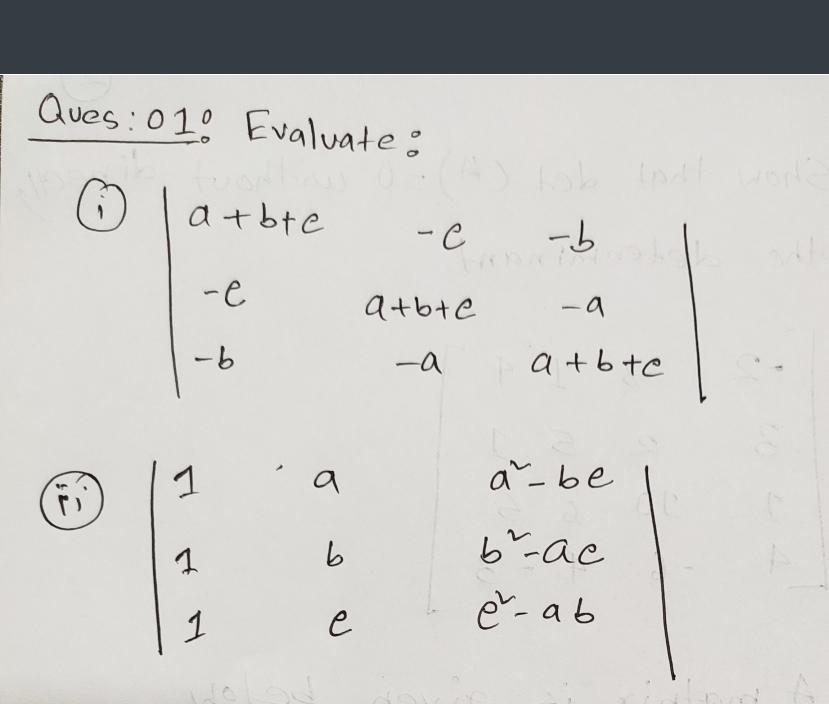 Ques: 01: Evaluate:
(i) | a+b+c -c -b |
| -c a+b+c -a |
| -b -a a+b+c |
(ii) | 1 a a²-bc |
| 1 b b²-ac |
| 1 c c²-ab |